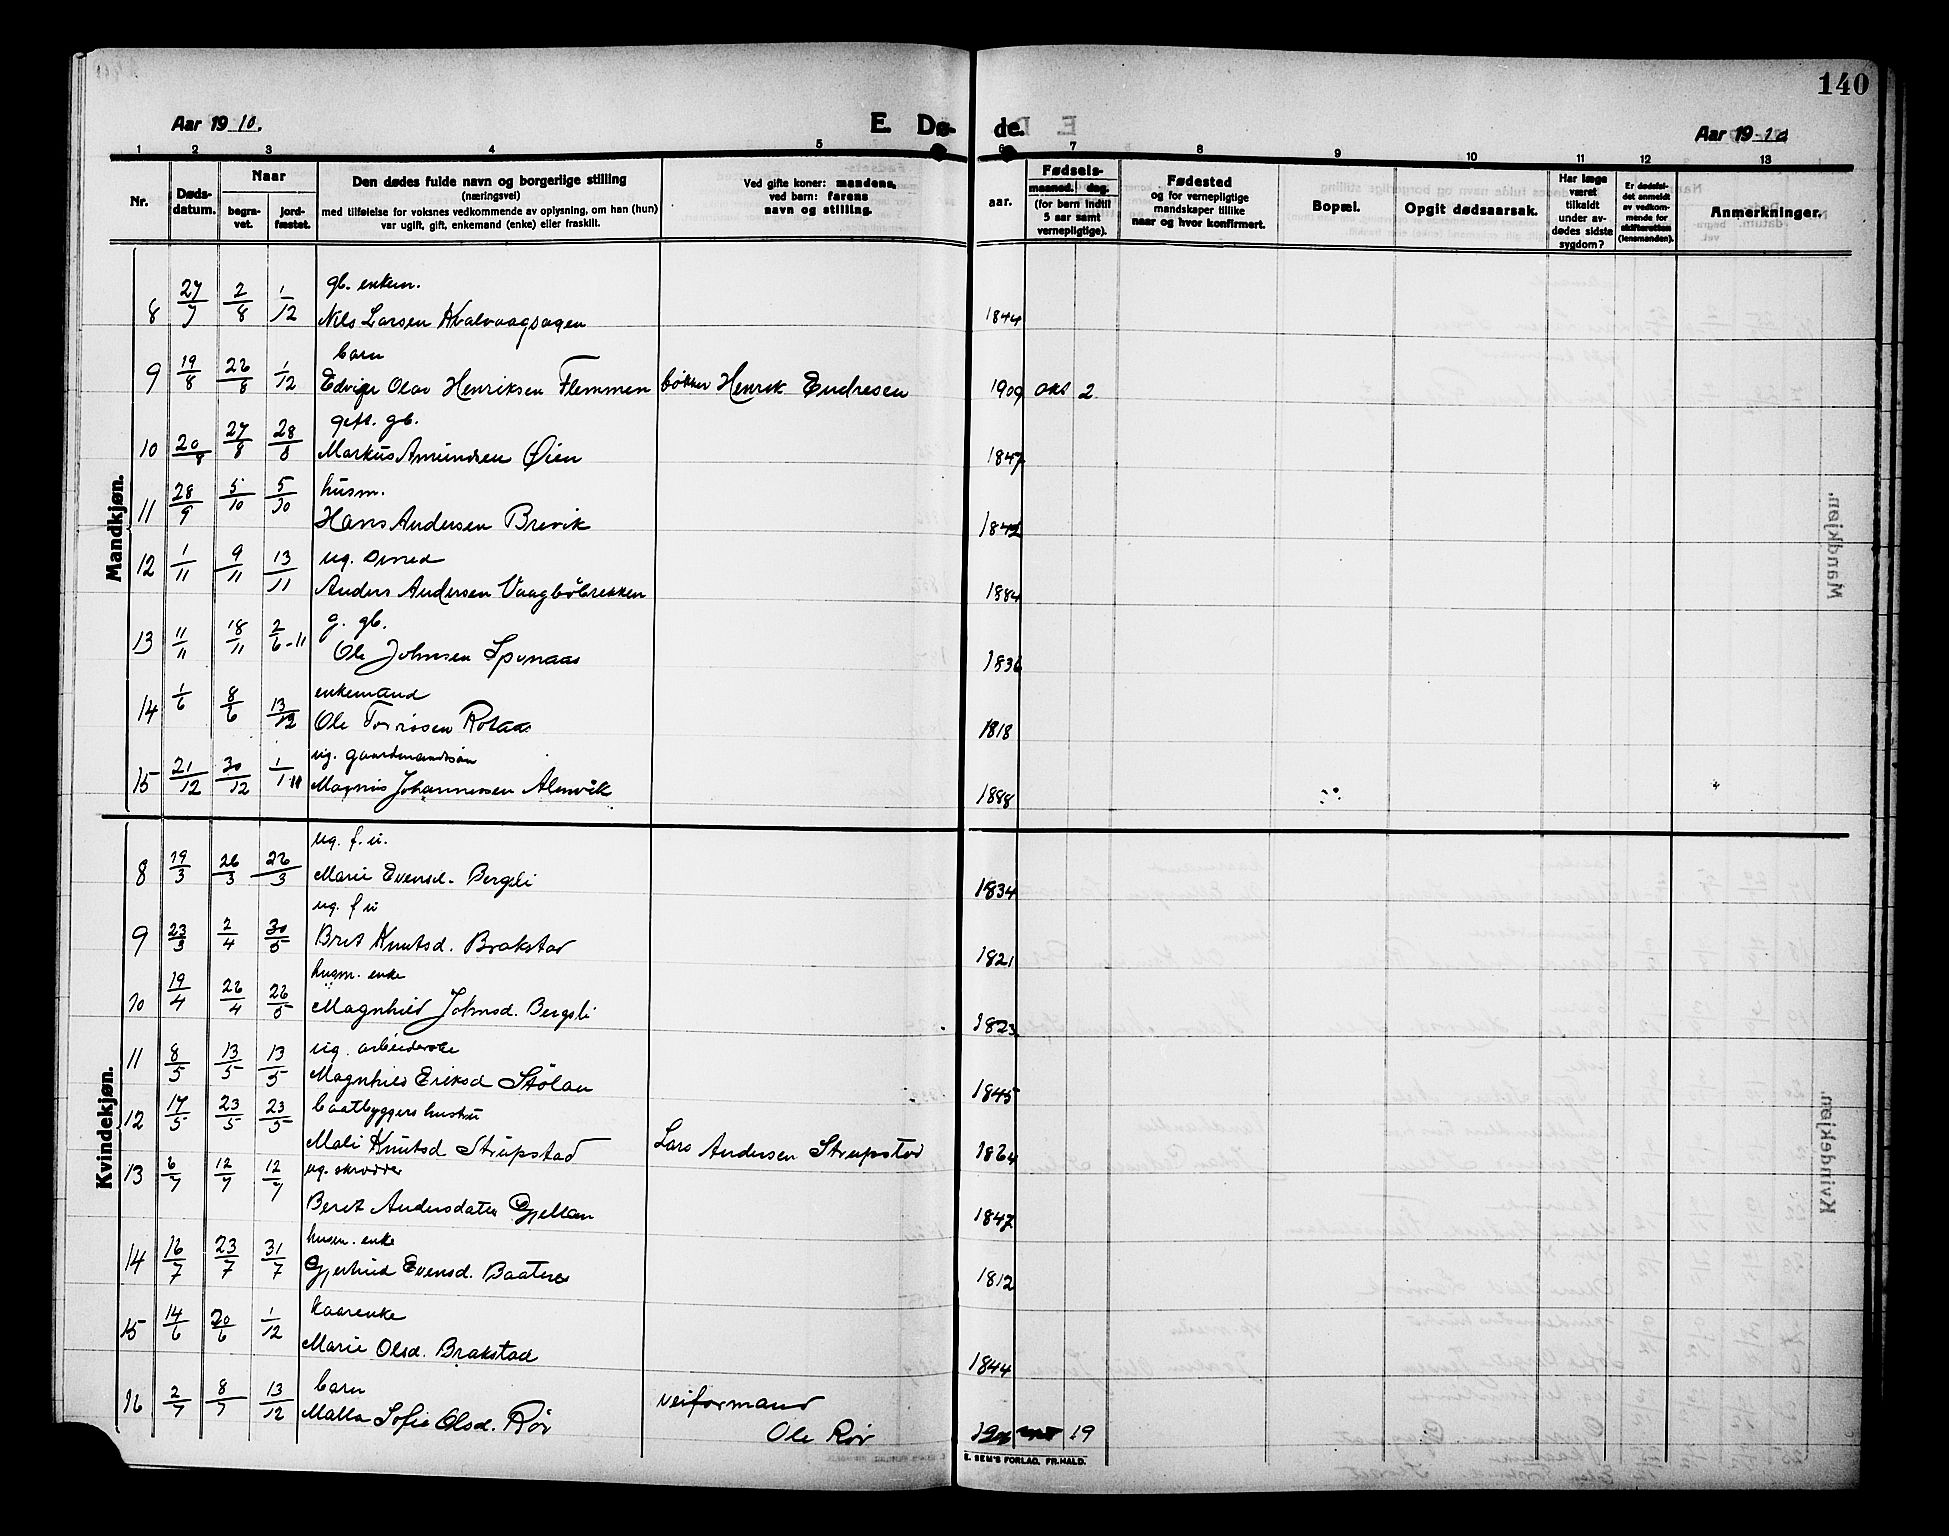 140
Aar 1910.
E. Dø-
de.
Aar 1910
1 2 3 4 5 6 7 8 9 10 11 12 13
Nr.
Døds-
datum.
Naar
begra-
vet.
jord-
fæstet.
Den dødes fulde navn og borgerlige stilling
(næringsvei)
med tilføielse for voksnes vedkommende av oplysning, om han (hun)
var ugift, gift, enkemand (enke) eller fraskilt.
Ved gifte koner: mandens,
ved børn: farens
navn og stilling.
aar.
Fødsels-
maaned. dag.
(for børn indtil
5 aar samt
vernepligtige).
Fødested
og for vernepligtige
mandskaper tillike
naar og hvor konfirmert.
Bopæl.
Opgit dødsaarsak.
Har læge
været
tilkaldt
under av-
dødes sidste
sygdom?
Er dødsfal-
det anmeldt
av vedkom-
mende for
skifteretten
(lensmanden).
Anmerkninger.
Mandkjøn.
gb. enkem.
8 27/7 2/8 1/12 Nils Larsen Kvalvaagsagen 1844
barn
9 19/8 26/8 1/12 Olav Henriksen Flemmen bøkker Henrik Endresen 1909 okt 2
gift. gb.
10 20/8 27/8 28/8 Markus Amundsen Øien 1847
husm.
11 28/9 5/10 5/10 Hans Andersen Brevik 1842
ug.
12 1/11 9/11 13/11 Anders Andersen Vaagbøbrekken 1884
g. gb.
13 11/11 18/11 2/6-11 Ole Johnsen 1836
enkemand
14 1/6 8/6 13/12 Ole 1818
ug. gaardmandssøn
15 21/12 30/12 1/1 11 Magnus Johannessen Alnvik 1888
Kvindekjøn.
ug. f. u.
8 19/3 26/3 26/3 Marie Evensd. Bergsli 1834
ug. f u
9 23/3 2/4 30/5 Brit Knutsd. Brakstad 1821
husm. enke
10 19/4 26/4 26/5 Magnhild Johnsd. Bergsli 1823
ug.
11 8/5 13/5 13/5 Magnhild Eriksd Stølan 1845
baatbyggers hustru
12 17/5 23/5 23/5 Mali Knutsd Strupstad Lars Andersen Strupstad 1864
ug. skrædder
13 6/7 12/7 12/7 Beret Andersdatter Gjellan 1847
husm. enke
14 16/7 23/7 31/7 Gjertrud Evensd. 1812
kaarenke
15 14/6 20/6 1/12 Marie Olsd. Brakstad 1844
barn
16 2/7 8/7 13/12 Malla Sofie Olsd. Rør veiformand
Ole Rør 19
E. SEM'S FORLAG, FR.HALD.